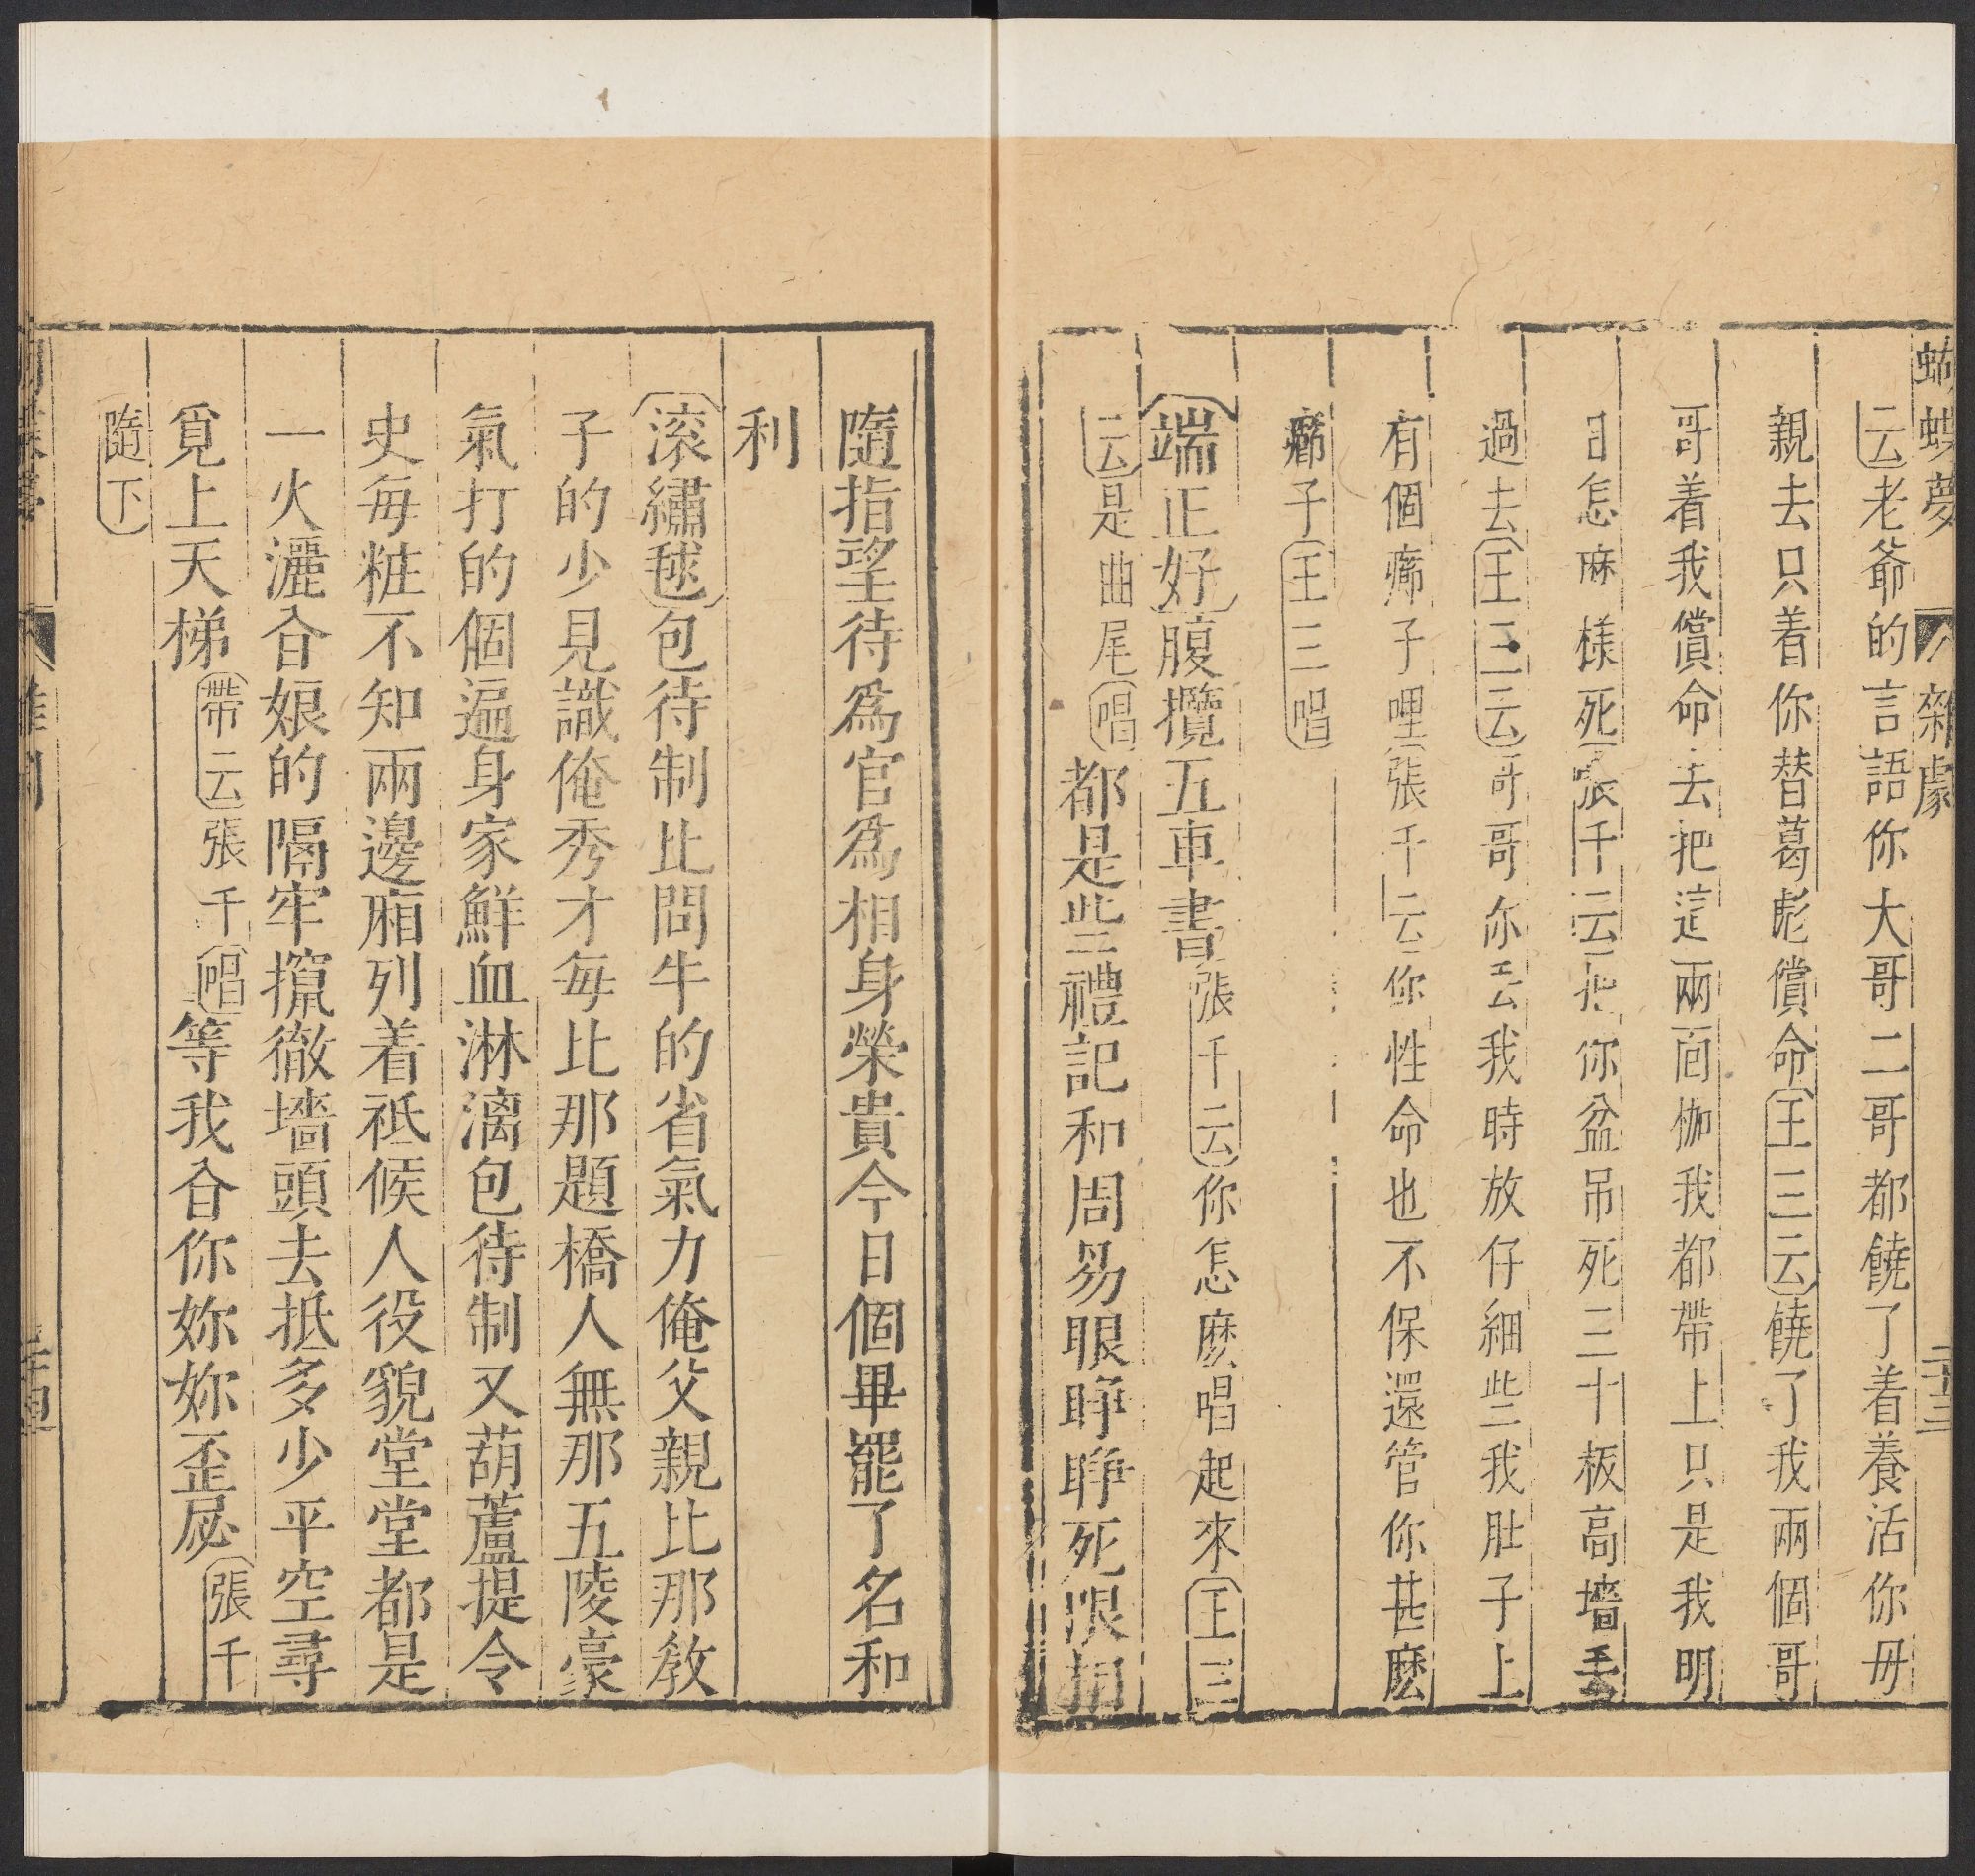 蝴蝶夢 雜劇 二十三
云老爺的言語你大哥二哥都饒了着養活你毋
親去只着你替葛彪償命王三云饒了我兩個哥
哥着我償命去把這兩面枷我都帶上只是我明
日怎麻樣死張千云把你盆吊死三十板高墻丟
過去王三云哥哥你丟我時放仔細些我肚子上
有個癤子哩張千云你性命也不保還管你甚麽
癤子王三唱
端正好腹攬五車書張千云你怎麽唱起來王三
云是曲尾唱都是些禮記和周易眼睜睜死限相
隨指望待爲官爲相身榮貴今日個畢罷了名和
利
滚繡毬包待制比問牛的省氣力俺父親比那教
子的少見識俺秀才每比那題橋人無那五陵豪
氣打的個遍身家鮮血淋漓包待制又葫蘆提令
史每粧不知兩邊廂列着祗候人役貌堂堂都是
一火灑㒲娘的隔牢攛徹墻頭去抵多少平空尋
覓上天梯帶云張千唱等我㒲你妳妳歪屄張千
隨下